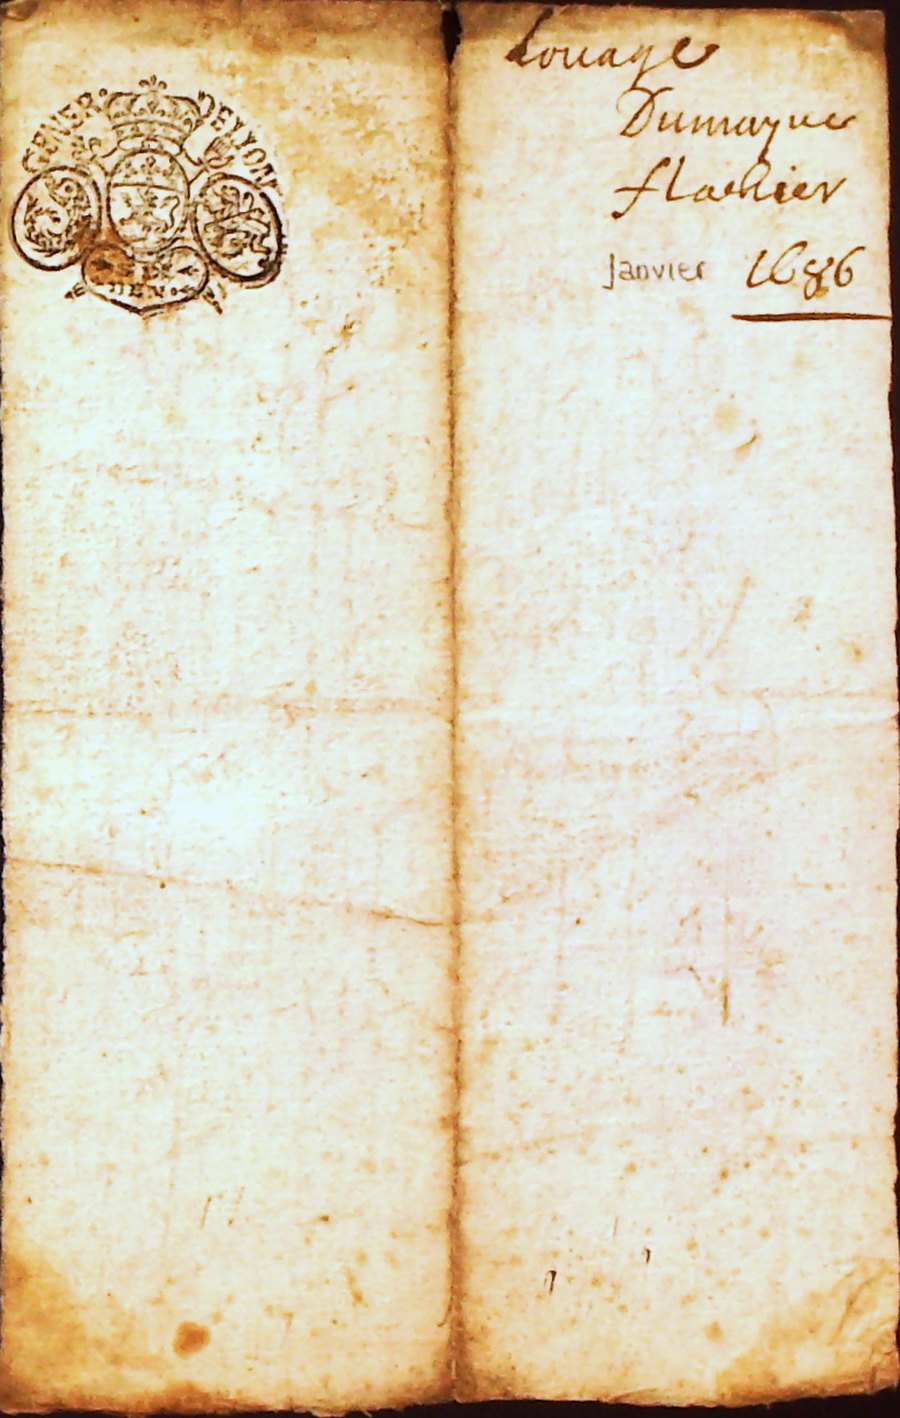 GENER· DE LYON
Louage
Dumayne
flachier
janvier 1686